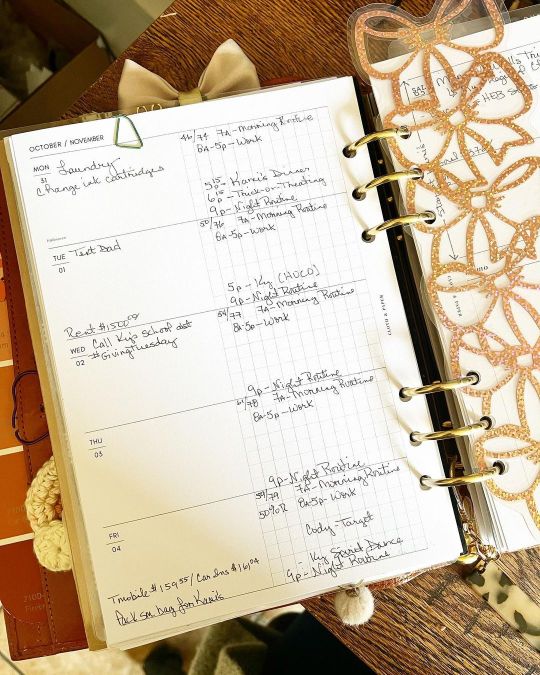 OCTOBER / NOVEMBER
46/74 7A-Morning Routine
8A-5p-Work
MON
31
Laundry
Change ink cartridges
5 15 p - Kami's Dinner
6 15 p - Trick-or-Treating
9p-Night Routine
Halloween
TUE
01
Text Dad
50/76 7A-Morning Routine
8A-5p-Work
5p-Ky (HOCO)
9p-Night Routine
Rent $1500.00
WED
02
Call Ky's school dst
#GivingTuesday
54/77 7A-Morning Routine
8A-5p-Work
9p-Night Routine
THU
03
61/78 7A-Morning Routine
8A-5p-Work
9p-Night Routine
FRI
04
59/79 7A-Morning Routine
50%R 8A-5p-Work
Cody-Target
- Ky Dance
9p-Night Routine
Tmobile $159.55 / Car Ins $161.04
Pack sm. bag for
CLOTH & PAPER
HEB